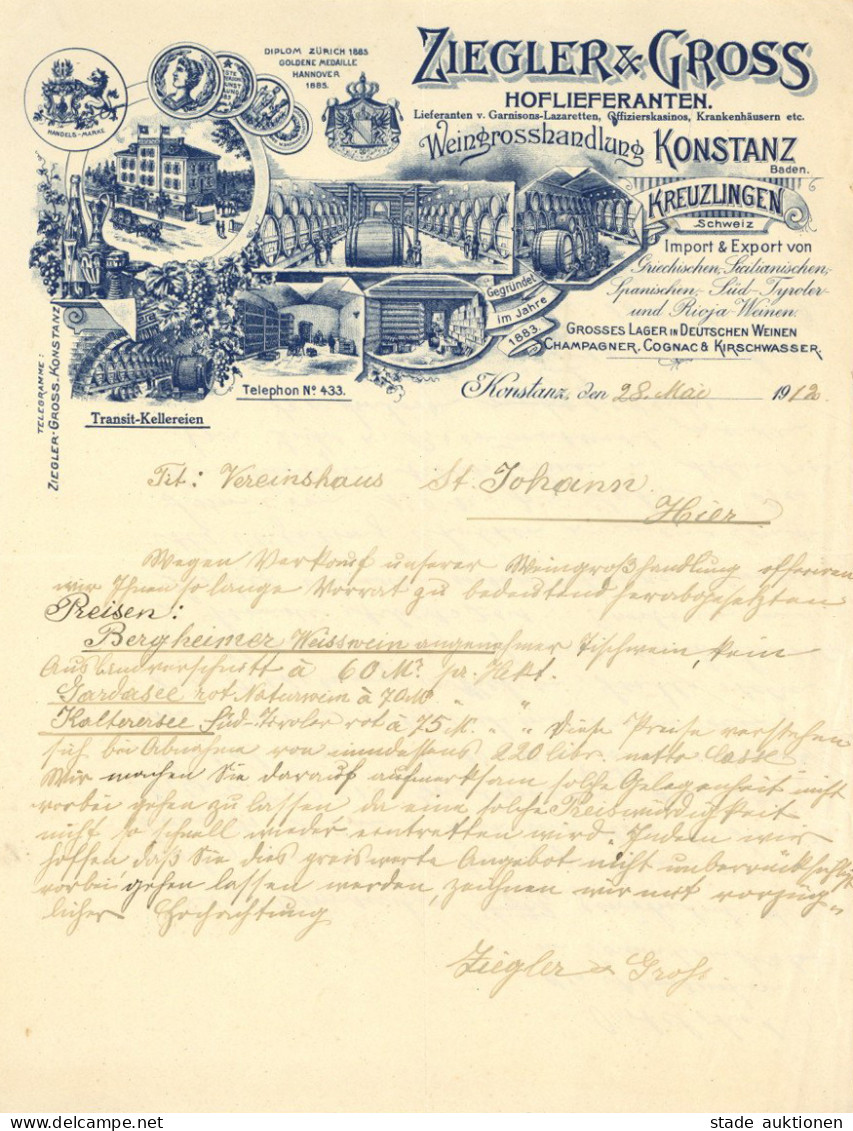 DIPLOM ZÜRICH 1883
GOLDENE MEDAILLE
HANNOVER
1885.
HANDELS-MARKE
ZIEGLER & GROSS
HOFLIEFERANTEN.
Lieferanten v. Garnisons-Lazaretten, Offizierskasinos, Krankenhäusern etc.
Weingrosshandlung KONSTANZ
Baden.
KREUZLINGEN
Schweiz
Import & Export von
Griechischen, Italianischen,
Spanischen, Süd-Tyroler
und Rioja-Weinen.
GROSSES LAGER IN DEUTSCHEN WEINEN
CHAMPAGNER, COGNAC & KIRSCHWASSER.
Gegründet
im Jahre
1883.
TELEGRAMME:
ZIEGLER-GROSS.KONSTANZ
Transit-Kellereien
Telephon No. 433.
Konstanz, den 28. Mai 1912.
Tit: Vereinshaus St. Johann
Hier
Wegen Verkauf unserer Weingroßhandlung offeriren
wir Ihnen so lange Vorrat zu bedeutend herabgesetzten
Preisen:
Bergheimer Weisswein angenehmer Tischwein, kein
Auslandverschnitt à 60 M. pr. Hekt.
Gardasee rot Naturwein à 70 M " "
Kalterersee Süd-Tyroler rot à 75 M. " " Diese Preise verstehen
sich bei Abnahme von mindesens 220 litr. netto Casse
Wir machen Sie darauf aufmerksam solche Gelegenheit nicht
vorbei gehen zu lassen da eine solche Preiswürdigkeit
nicht so schnell wieder eintretten wird. Indem wir
hoffen daß Sie dies preiswerte Angebot nicht unberücksichtigt
vorbei gehen lassen werden, zeichnen wir mit vorzüg-
licher Hochachtung
Ziegler & Gross.
stade auktionen